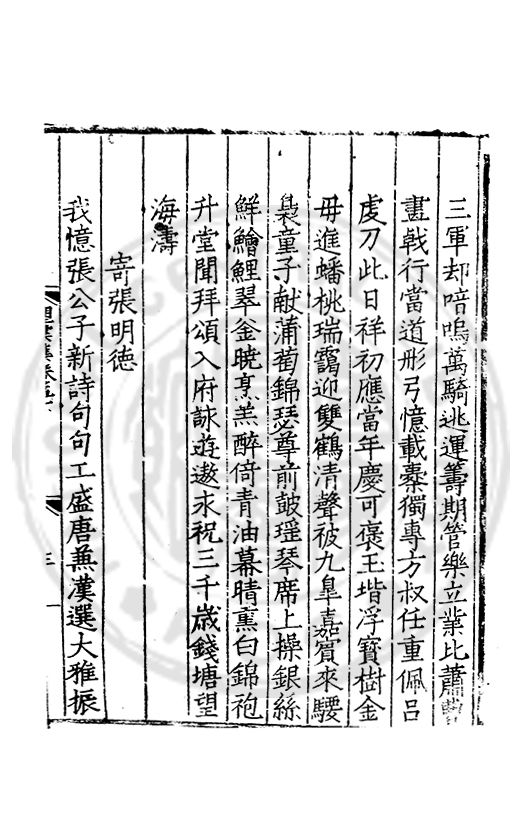 三軍却喑嗚萬騎逃運籌期管樂立業比蕭曹
畫戟行當道彤弓憶載櫜獨專方叔任重佩呂
虔刀此日祥初應當年慶可褒玉堦浮寳樹金
母進蟠桃瑞靄迎雙鶴清聲被九臯嘉賓來騕
褭童子献蒲萄錦瑟尊前皷瑶琴席上操銀絲
鮮鱠鯉翠釡曉烹羔醉倚青油幕晴熏白錦袍
升堂聞拜頌入府詠遊遨永祝三千歲錢塘望
海濤
寄張明德
我憶張公子新詩句句工盛唐兼漢選大雅振